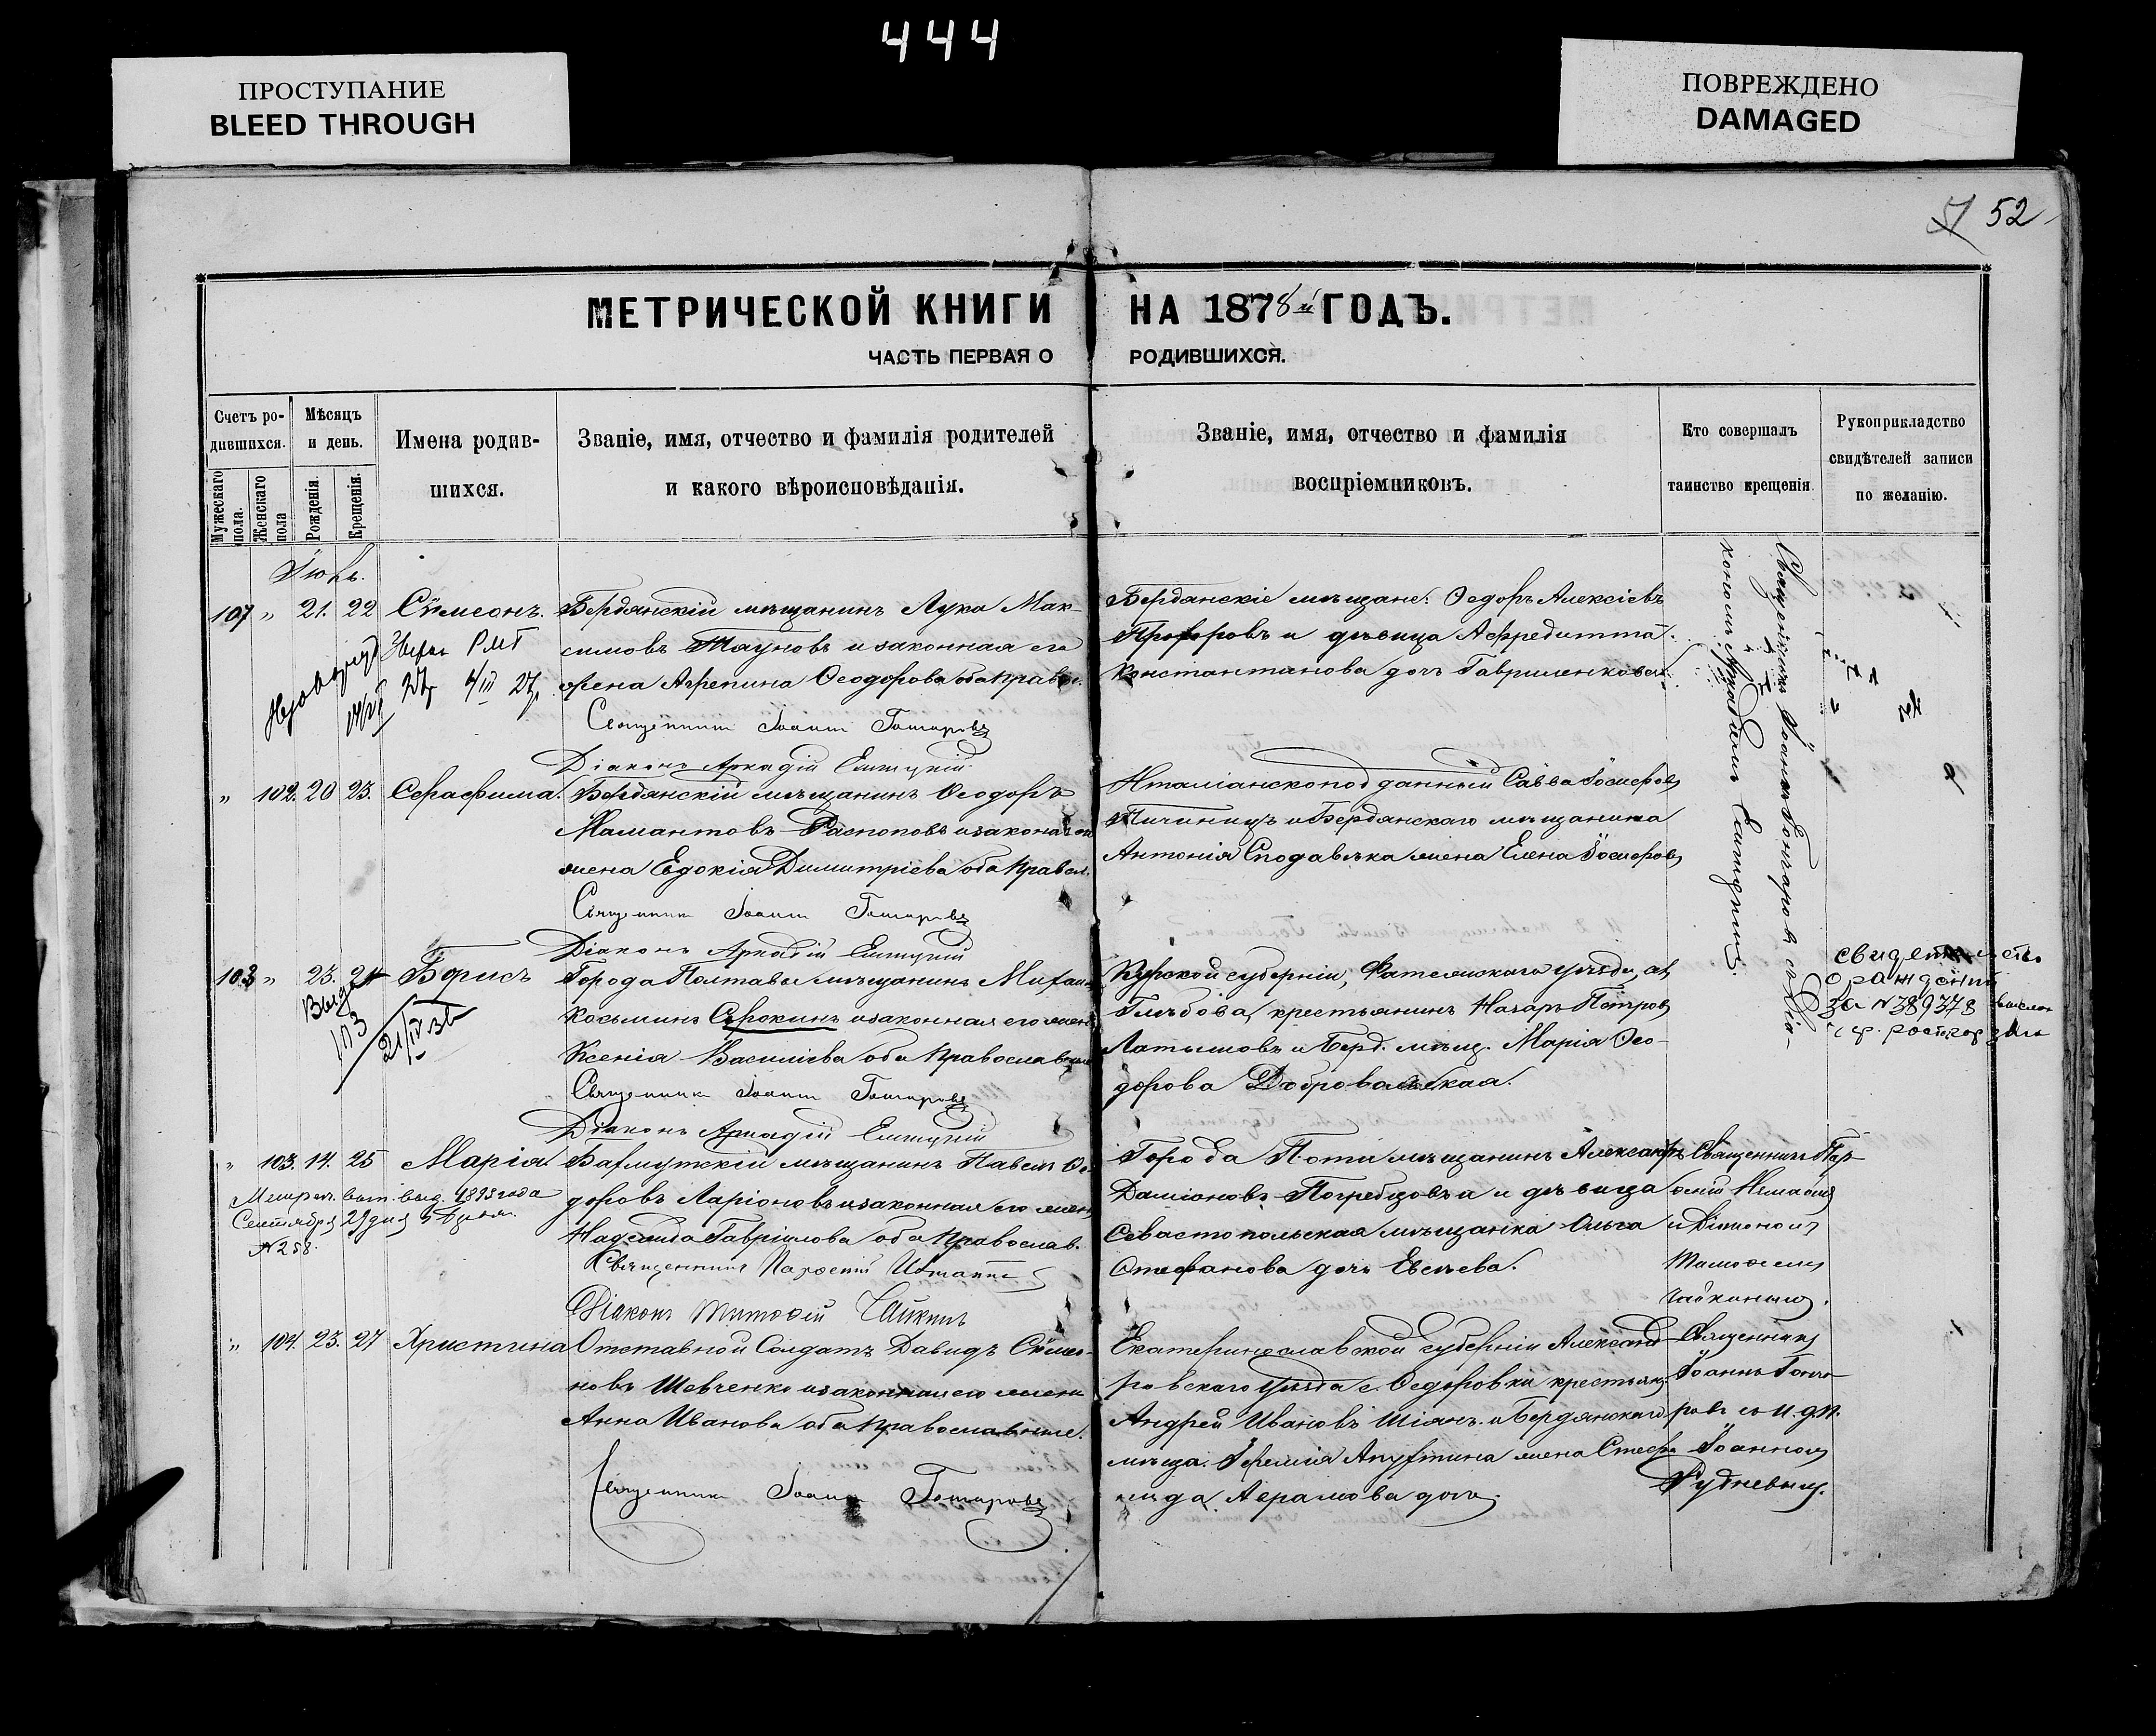 444
ПРОСТУПАНИЕ
BLEED THROUGH
ПОВРЕЖДЕНО
DAMAGED
52
МЕТРИЧЕСКОЙ КНИГИ НА 1878 й ГОДЪ.
ЧАСТЬ ПЕРВАЯ О РОДИВШИХСЯ.
Счетъ ро-
дившихся.
Мужескаго пола.
Женскаго пола
Мѣсяцъ
и день.
Рожденія.
Крещенія.
Имена родив-
шихся.
Званіе, имя, отчество и фамилія родителей
и какого вѣроисповѣданія.
Званіе, имя, отчество и фамилія
воспріемниковъ.
Кто совершалъ
таинство крещенія
Рукоприкладство
свидѣтелей записи
по желанію.
107 " 21. 22 Сѵмеонъ.
Бердянскій мѣщанинъ Лука Мак-
симовъ и законная его
жена Агрепина Ѳеодорова оба правос.
Священникъ Іоаннъ Гончаровъ
Діаконъ Аркадій
Бердянскіе мѣщане: Ѳедоръ Алексіевъ
и дѣвица
Константинова дочь Гавриленкова
Священникъ Іоаннъ Гончаровъ съ діа-
кономъ Аркадіемъ
" 102. 20 23. Серафима.
Бердянскій мѣщанинъ Ѳеодоръ
Мамантовъ Распоповъ и законная его
жена Евдокія Димитріева оба правосл.
Священникъ Іоаннъ Гончаровъ
Діаконъ Аркадій
Италіанскоподданный Савва Іосифовъ
и Бердянскаго мѣщанина
Антонія жена Елена Іосифов
103 " 23. 24 Борисъ
Города Полтавы мѣщанинъ Михаилъ
Косьминъ Сорокинъ и законная его жена
Ксенія Василіева оба православные
Священникъ Іоаннъ Гончаровъ
Діаконъ Аркадій
Курской губерніи, Фатежскаго уѣзда, с.
Глѣбова, крестьянинъ Назаръ Петров
Латышовъ и Берд. мѣщ. Марія Ѳео-
дорова Добровольская.
свидетельство
о рождении
за N 389378
" 103. 14. 25 Марія
Метрич. вып. выд. 1893 года
Сентября 29 дня
N 258.
Бахмутскій мѣщанинъ Павелъ Ѳе-
доровъ Ларіоновъ и законная его жена
Надежда Гавріилова оба православ.
Священникъ
Діаконъ Тимоѳій Чайкинъ
Города Поти мѣщанинъ Александръ
Даміановъ Погребцовъ и дѣвица
Севастопольская мѣщанка Ольга
Стефанова дочь Евсѣева.
Священникъ
и Діакономъ
Тимоѳеем
Чайкинымъ.
" 104. 23. 27 Христина
Отставной Солдатъ Давидъ Сѵмео-
новъ Шевченко и законная его жена
Анна Иванова оба православные.
Священникъ Іоаннъ Гончаровъ
Екатеринославской губерніи Александ-
ровскаго уѣзда с. Ѳедоровки крестьян.
Андрей Ивановъ Шіянъ и Бердянскаго
мѣща. жена Стефа-
нида Аврамова дочь
Священникъ
Іоаннъ Гонча-
ровъ съ И. д. П.
Іоанномъ
Рудневымъ.